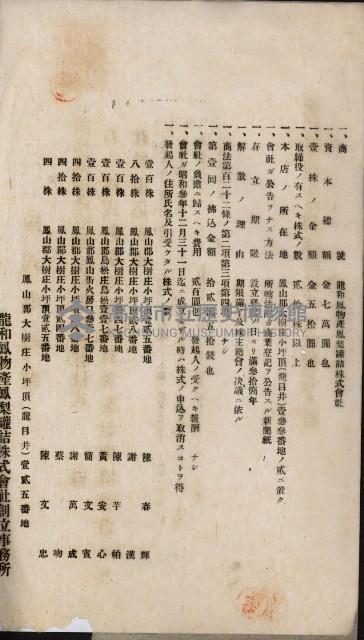 一、商號 龍和鳳物產鳳梨罐詰株式會社
一、資本總額 金七萬圓也
一、壹株ノ金額 金五拾圓也
一、取締役ノ有スヘキ株式ノ數 貳拾株以上
一、本店ノ所在地 鳳山郡大樹庄小坪頂(龍目井)壹參參番地ノ貳ニ置ク
一、會社ガ公告ヲナス方法 所轄法院ガ商業登記ヲ公告スル新聞紙
一、存立期限 設立ノ日ヨリ滿參拾箇年
一、解散ノ理由 期限滿了及株主總會ノ決議ニ依ル
一、商法第百二十二條ノ第二項第三項第四項 ナシ
一、第壹回ノ拂込金額 拾貳圓五拾錢也
一、會社ノ負擔ニ歸スヘキ費用 貳百圓 發起人ノ受クヘキ報酬 ナシ
一、會社ガ昭和參年十二月三十一日迄ニ成立セザル時ハ株式ノ申込ヲ取消スコトヲ得
一、發起人ノ住所氏名及引受ケタル株式
壹百株 鳳山郡大樹庄小坪頂 番地 陳春輝
八拾株 鳳山郡大樹庄小坪頂 番地 謝漢
壹百株 鳳山郡大樹庄 八番地 陳芋帕
壹百株 鳳山郡鳥松庄鳥松壹壹七番地 黃安心
壹百株 鳳山郡鳳山街火房口 七番地 簡文賓
四拾株 鳳山郡大樹庄 番地 謝萬成
四拾株 鳳山郡大樹庄 番地 蔡吻
四株 鳳山郡大樹庄小坪頂壹貳五番地 陳文忠
鳳山郡大樹庄小坪頂(龍目井)壹貳五番地
龍和鳳物產鳳梨罐詰株式會社創立事務所
高雄市立歷史博物館
KAOHSIUNG MUSEUM OF HISTORY